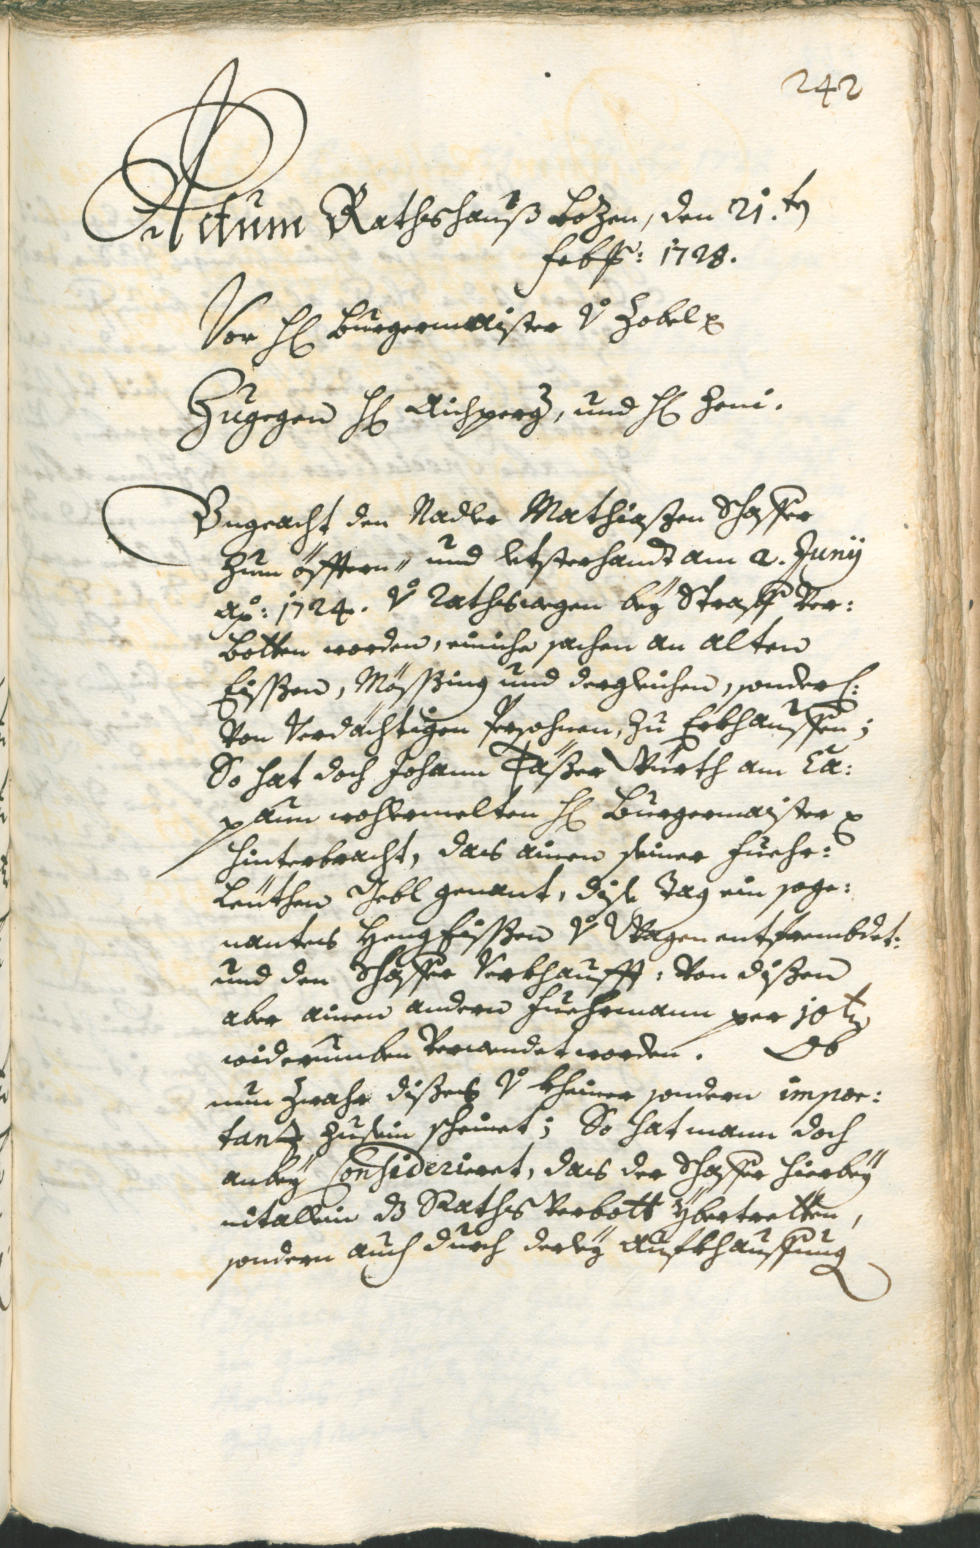 242
Actum Rathshauß Bozen, den 21.ten
Febr: 1728.
Vor H: Burgermaister v Zobel
Zugegen H: Aichperg, und H: Heni.
Ungeacht den Nadler Mathiaßen Schaffer
zum öfftern" und letsterhandt am 2. Junÿ
Ao: 1724. v Rathswegen beÿ Straff ver:
botten worden, einiche sachen an alten
Eißen, Mössing und dergleichen, sonderl:
von verdächtigen Persohnen, zu Erkhauffen;
So hat doch Johann Täßer Würth am Ca:
paun wohlermelten H: Burgermaister
hinterbracht, das ainen seiner Fuehr:
Leüthen Jebl genant, dise Tag ein soge:
nantes Heng Eißen v Wagen entfrembdet:
und den Schaffer verkhaufft: von dißen
aber ainen andern Fuehrmann per 10
widerumben verwendet worden. Ob
nun zwahr dißes v kheiner sondern impor:
tanz zu sein scheinet; So hat mann doch
anbeÿ Considerieret, das der Schaffer hierbeÿ
nit allein ds Raths verbott ybertretten,
sondern auch durch derleÿ Aufkhauffung